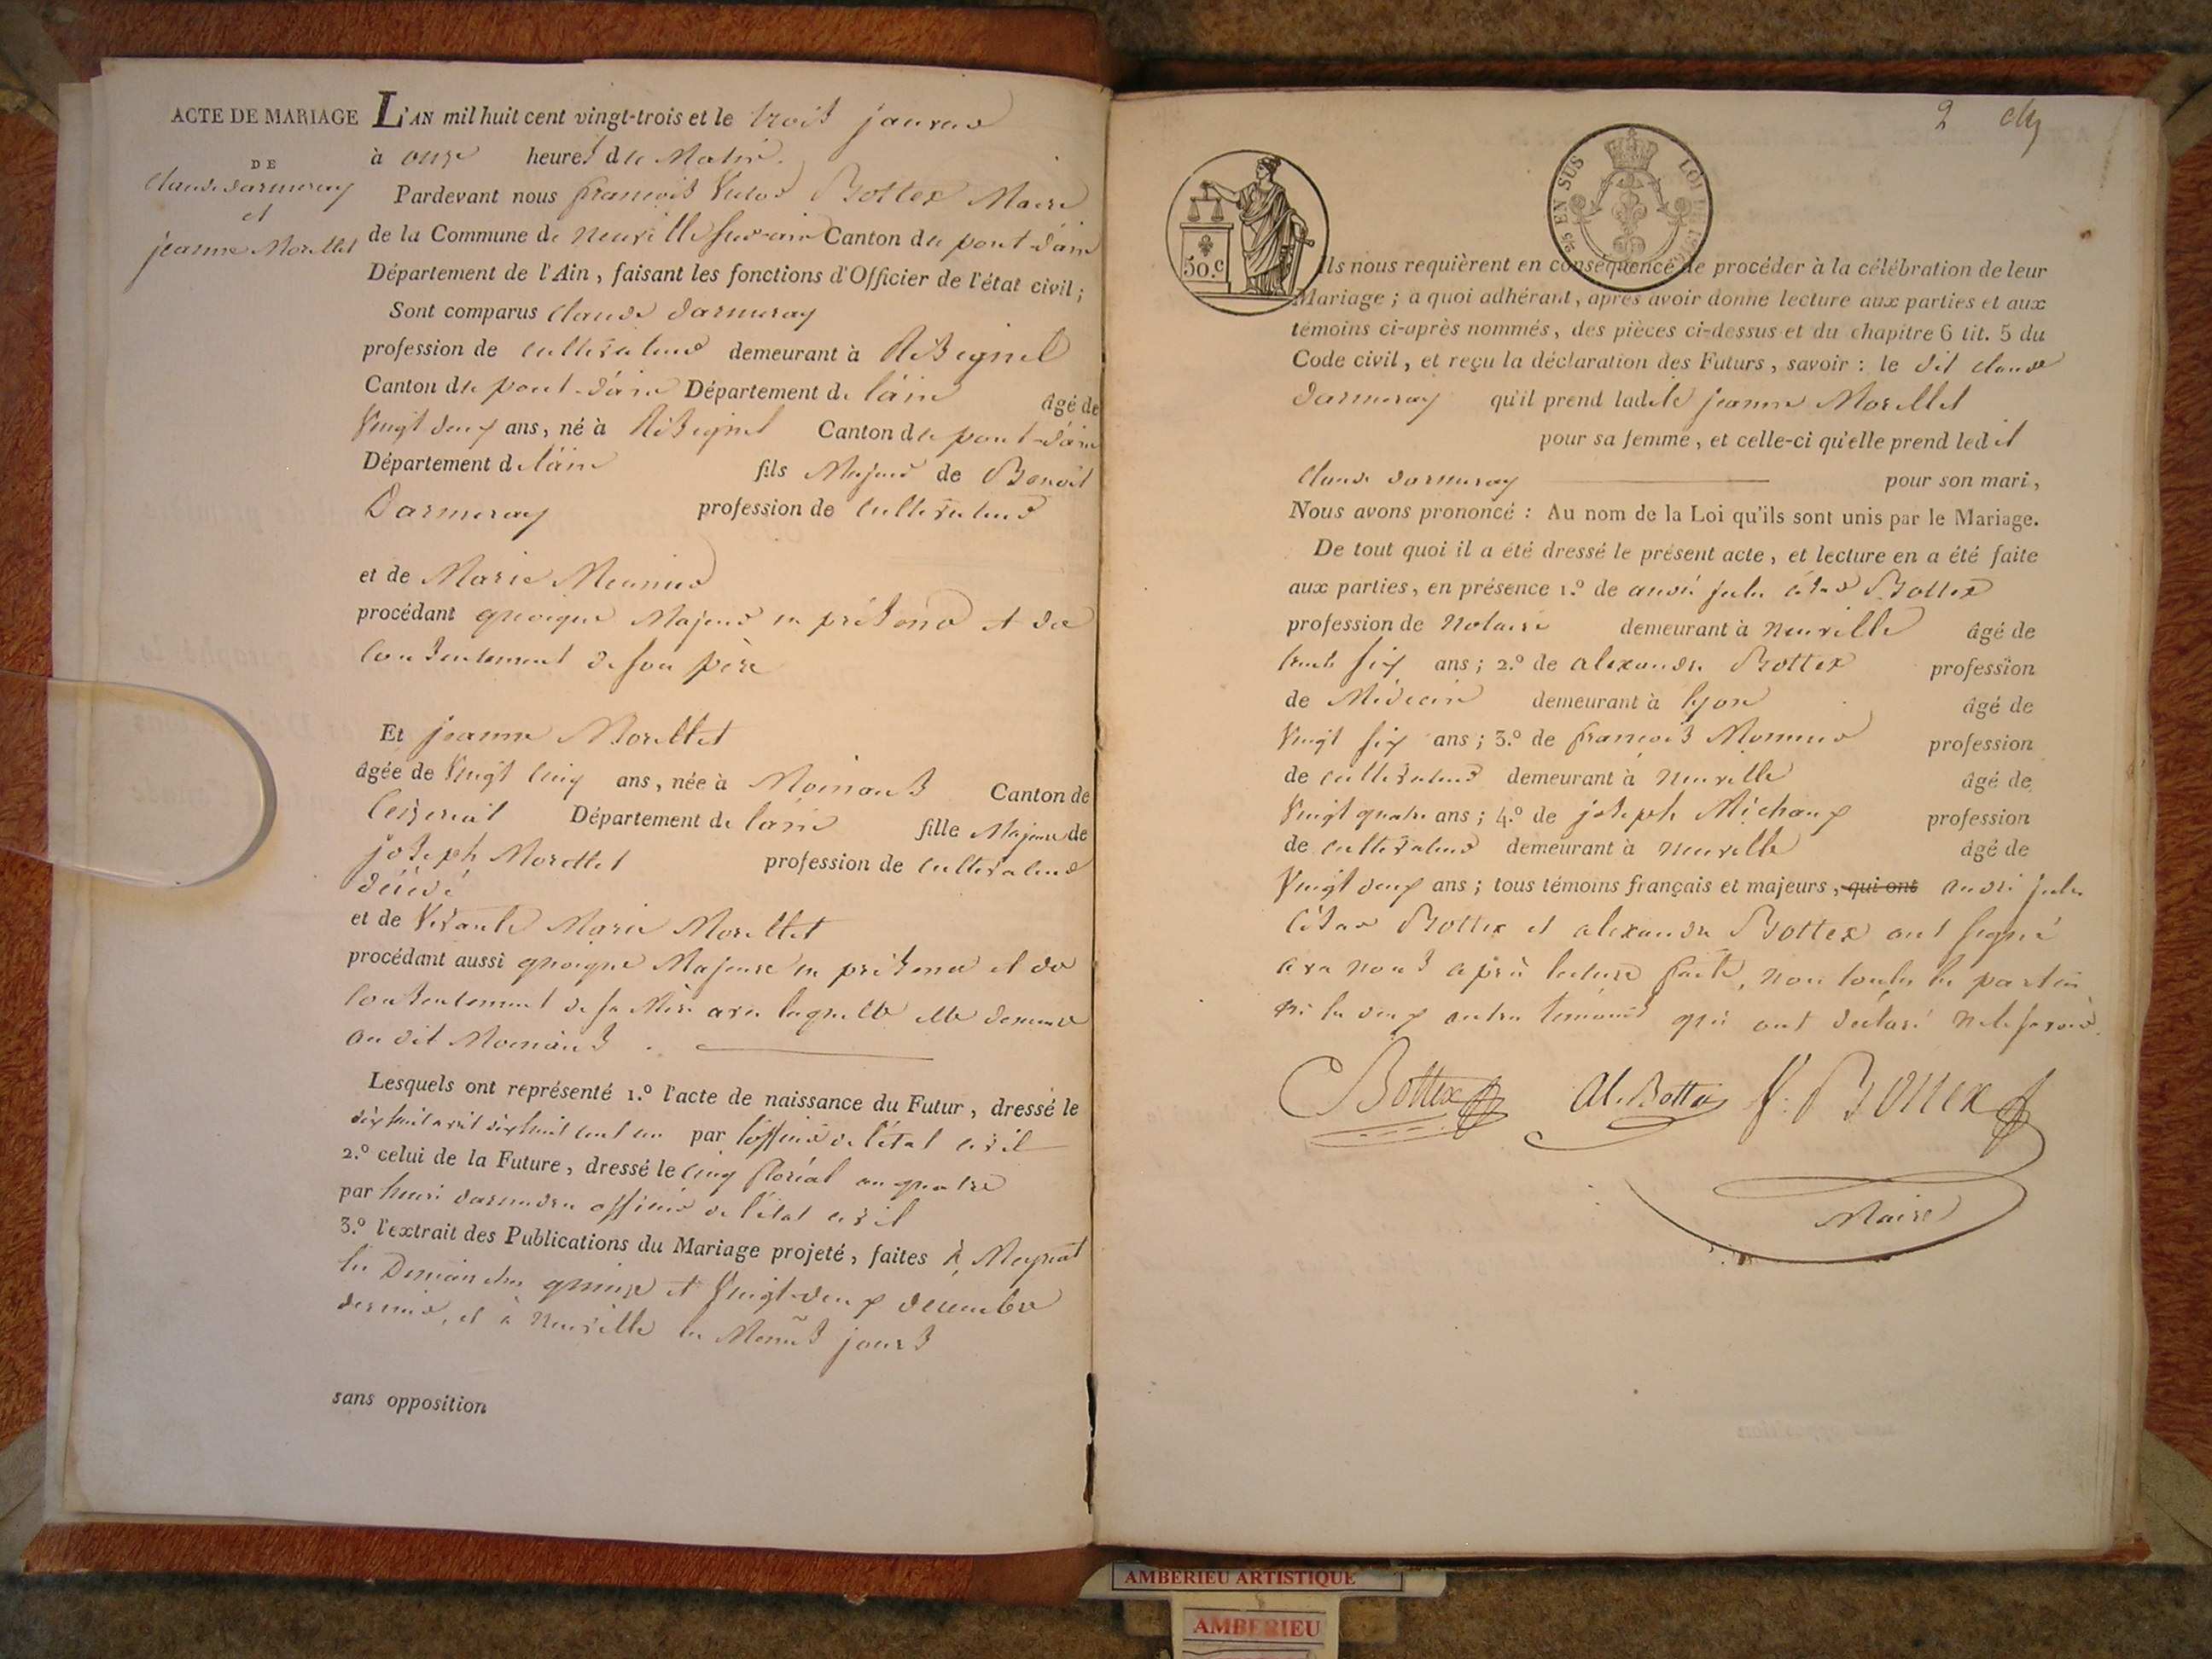 ACTE DE MARIAGE
DE
Claude darmeray
et
jeanne Morellet
L'AN mil huit cent vingt-trois et le trois janvier
à onze heures du Matin.
Pardevant nous françois Victor Bottex Maire
de la Commune de neuville sur ain Canton du pont-d'ain
Département de l'Ain, faisant les fonctions d'Officier de l'état civil;
Sont comparus Claude darmeray
profession de cultivateur demeurant à Résignel
Canton du pont-d'ain Département de l'ain âgé de
Vingt deux ans, né à Résignel Canton du pont-d'ain
Département de l'ain fils Majeur de Benoit
Darmeray profession de Cultivateur
et de Marie Meunier
procédant quoique Majeur en présence et du
Consentement de son père
Et jeanne Morellet
âgée de Vingt cinq ans, née à Moinans Canton de
Ceyzeriat Département de l'ain fille Majeure de
joseph Morellet profession de Cultivateur
décédé
et de Vivante Marie Morellet
procédant aussi quoique Majeure en présence et du
Consentement de sa Mère avec laquelle elle demeure
au dit Moinans.
Lesquels ont représenté 1.º l'acte de naissance du Futur, dressé le
dix huit avril dix huit cent un par l'officier de l'état civil
2.º celui de la Future, dressé le cinq floréal an quatre
par henri officier de l'état civil
3.º l'extrait des Publications du Mariage projeté, faites à Meyriat
les Dimanches quinze et Vingt-deux decembre
dernier, et à neuville les Mêmes jours
sans opposition
2
25 EN SUS
LOI DE 1816
50.c
Ils nous requièrent en conséquence de procéder à la célébration de leur
Mariage; a quoi adhérant, après avoir donné lecture aux parties et aux
témoins ci-après nommés, des pièces ci-dessus et du chapitre 6 tit. 5 du
Code civil, et reçu la déclaration des Futurs, savoir: le dit claude
darmeray qu'il prend ladite jeanne Morellet
pour sa femme, et celle-ci qu'elle prend ledit
Claude darmeray pour son mari,
Nous avons prononcé: Au nom de la Loi qu'ils sont unis par le Mariage.
De tout quoi il a été dressé le présent acte, et lecture en a été faite
aux parties, en présence 1.º de andré jules césar Bottex
profession de Notaire demeurant à neuville âgé de
trente six ans; 2.º de alexandre Bottex profession
de Médecin demeurant à lyon âgé de
Vingt six ans; 3.º de françois Monnier profession
de cultivateur demeurant à neuville âgé de
Vingt quatre ans; 4.º de joseph Michaux profession
de cultivateur demeurant à neuville âgé de
Vingt deux ans; tous témoins français et majeurs, qui ont andré jules
César Bottex et alexandre Bottex ont signé
avec nous après lecture faite, non toutes les parties
ni les deux autres temoins qui ont déclaré ne le savoir.
CBottex Al. Bottex f: Bottex
Maire
AMBERIEU ARTISTIQUE
AMBERIEU